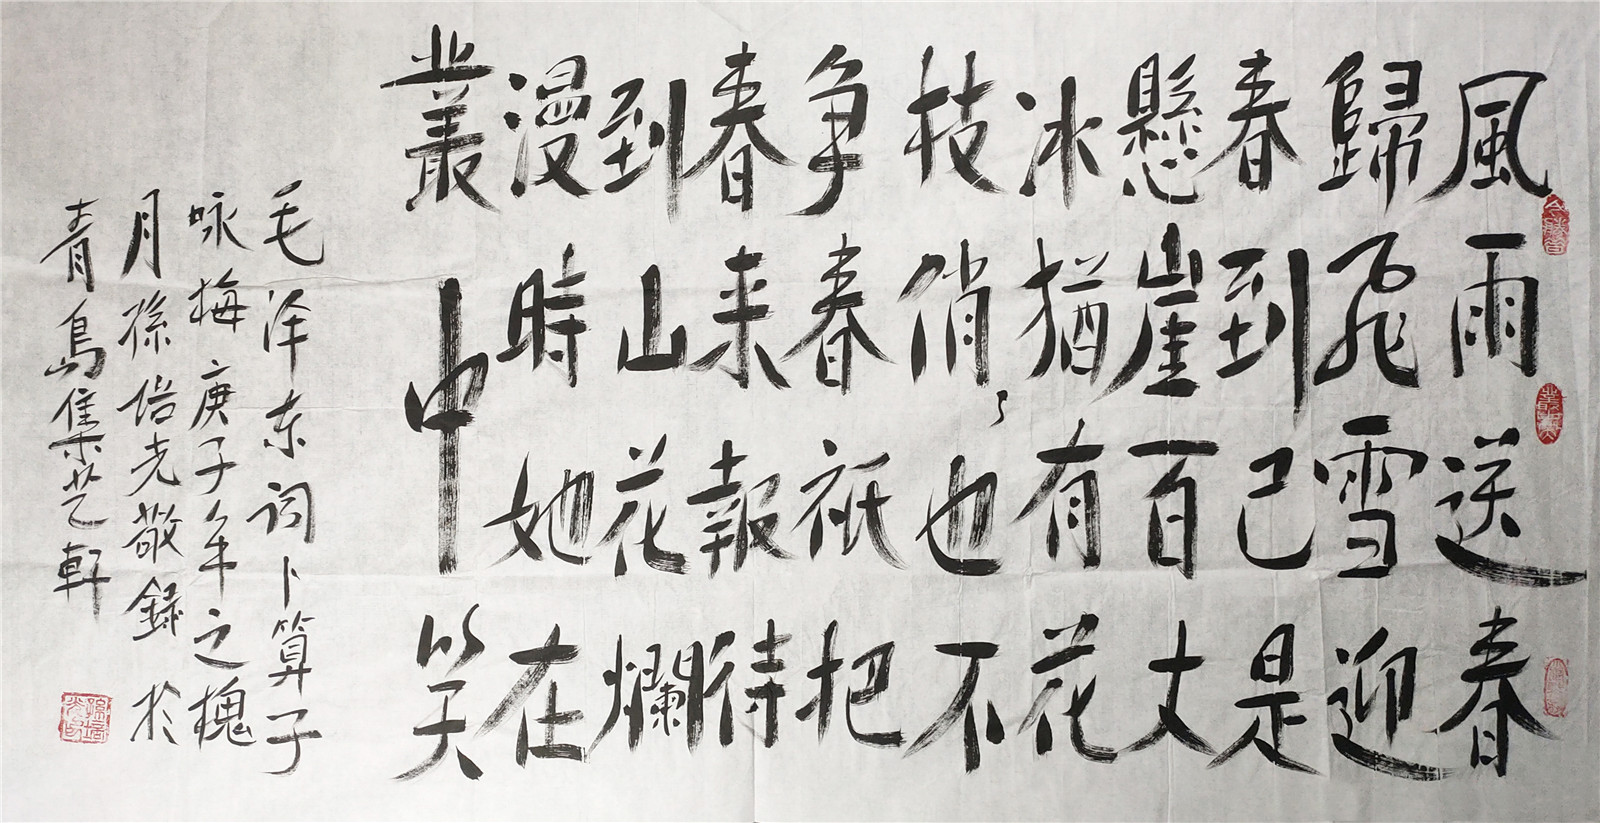 風雨送春
歸飛雪迎
春到已是
懸崖百丈
冰猶有花
枝俏〻也不
争春祇把
春来報待
到山花爛
漫時她在
叢中笑
毛泽东词卜算子
咏梅庚子年之槐
月孫培光敬録於
青島集艺軒